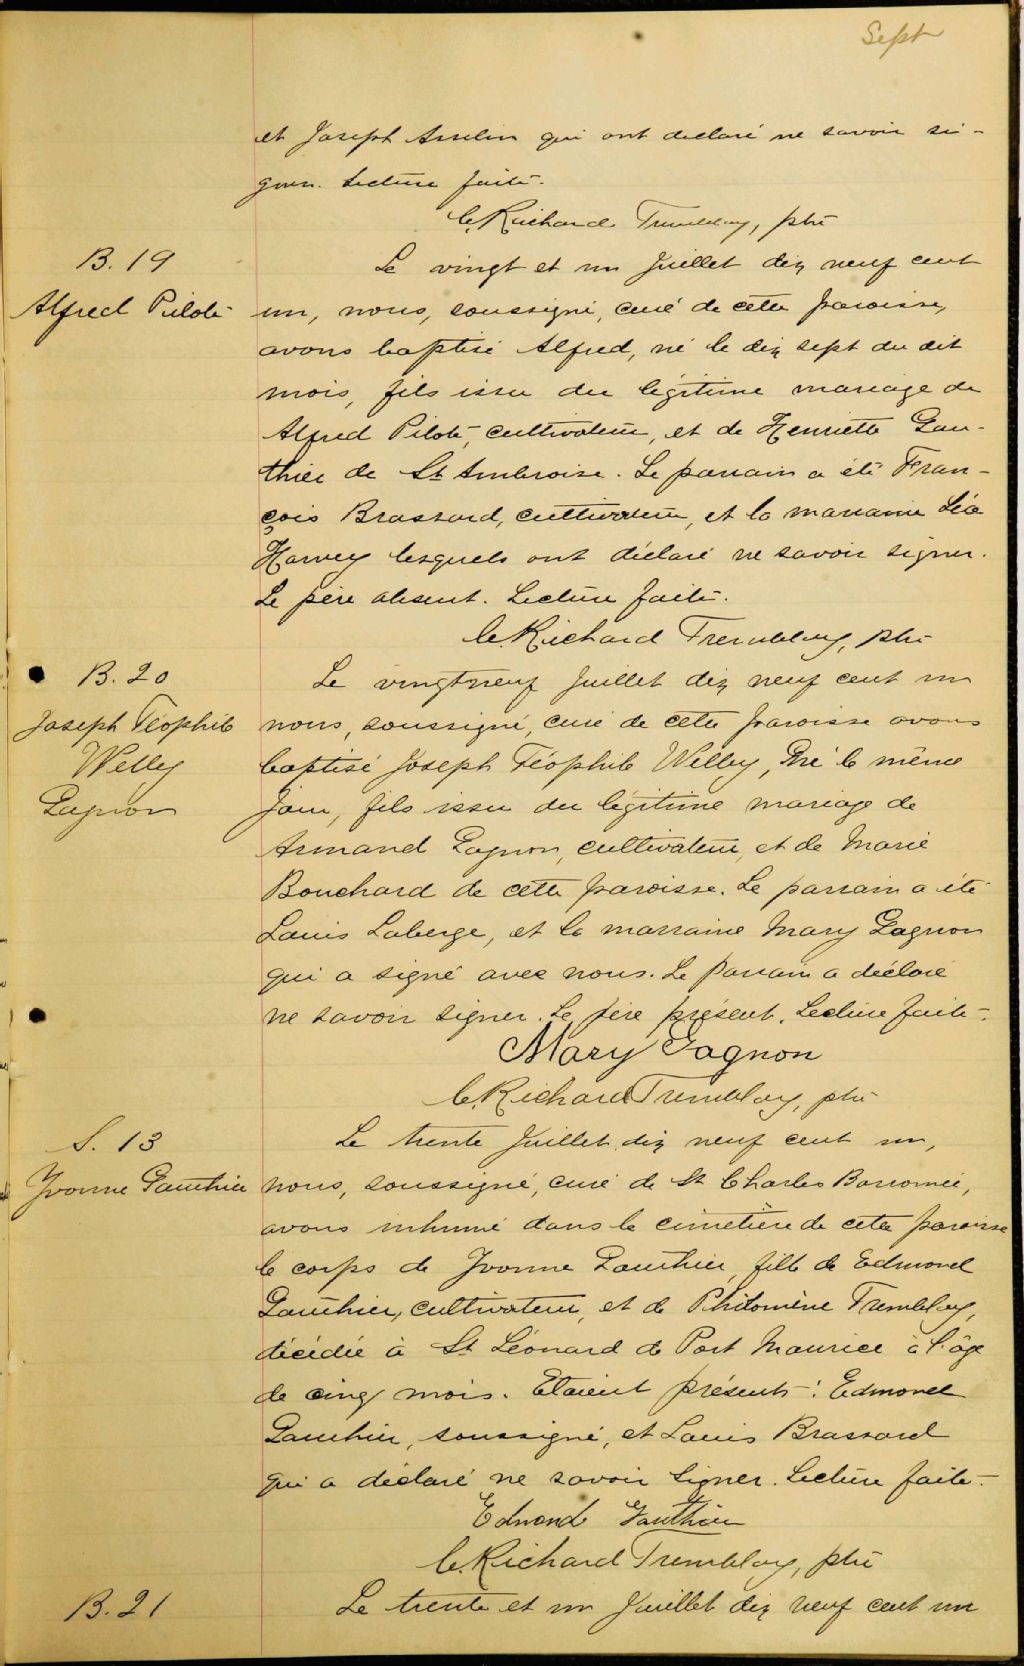 Sept
et Joseph Asselin qui ont declaré ne savoir si-
gner. Lecture faite.
C. Richard Tremblay, ptre
B. 19
Alfred Pilote
Le vingt et un Juillet dix neuf cent
un, nous, soussigné, curé de cette paroisse,
avons baptisé Alfred, né le dix sept du dit
mois, fils issu du légitime mariage de
Alfred Pilote, cultivateur, et de Henriette Gau-
thier de St Ambroise. Le parrain a été Fran-
çois Brassard, cultivateur, et la marraine Léa
Harvey lesquels ont déclaré ne savoir signer.
Le père absent. Lecture faite.
C. Richard Tremblay, ptre
B. 20
Joseph Téophile
Welley
Gagnon
Le vingtneuf Juillet dix neuf cent un
nous, soussigné, curé de cette paroisse avons
baptisé Joseph Téophile Welley, né le même
jour, fils issu du légitime mariage de
Armand Gagnon, cultivateur, et de Marie
Bouchard de cette paroisse. Le parrain a été
Louis Laberge, et la marraine Mary Gagnon
qui a signé avec nous. Le parrain a déclaré
ne savoir signer. Le père présent. Lecture faite.
Mary Gagnon
C. Richard Tremblay, ptre
S. 13
Yvonne Gauthier
Le trente Juillet dix neuf cent un,
nous, soussigné, curé de St Charles Borromée,
avons inhumé dans le cimetière de cette paroisse
le corps de Yvonne Gauthier, fille de Edmond
Gauthier, cultivateur, et de Philomène Tremblay,
décédée à St Léonard de Port Maurice à l'âge
de cinq mois. Etaient présents: Edmond
Gauthier, soussigné, et Louis Brassard
qui a déclaré ne savoir signer. Lecture faite.
Edmond Gauthier
C. Richard Tremblay, ptre
B. 21
Le trente et un Juillet dix neuf cent un